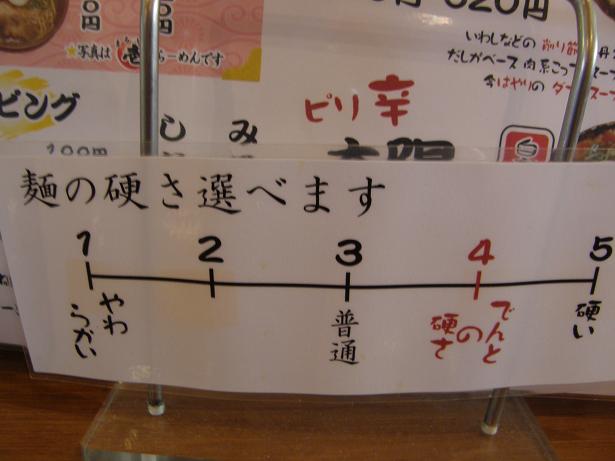 620円
いわしなどの 削り節
だしがベース 肉系こってスー
今はやりの ダ
★写真は 壱 らーめんです
ピング
ピリ辛
し
み
100円
麺の硬さ選べます
1 2 3 4 5
やわらかい
普通
でんとの硬さ
硬い